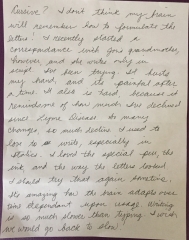 Cursive? I don't think my brain
will remember how to formulate the
letters! I recently started a
correspondance with Jon's grandmother,
however and she writes only in
script. I've been trying. It hurts
my hand, and its painful after
a time. It is also hard because it
reminds me of her much I've declined
since Lyme Disease. So many
changes, so much decline. I used to
love to write, especially in
stories. I loved the special pen, the
ink and the way the letters looked.
I should try that again sometime.
Its amazing how the brain adapts over
time dependant upon usage. Writing
is so much slower than typing. I wish
we would go back to slow.